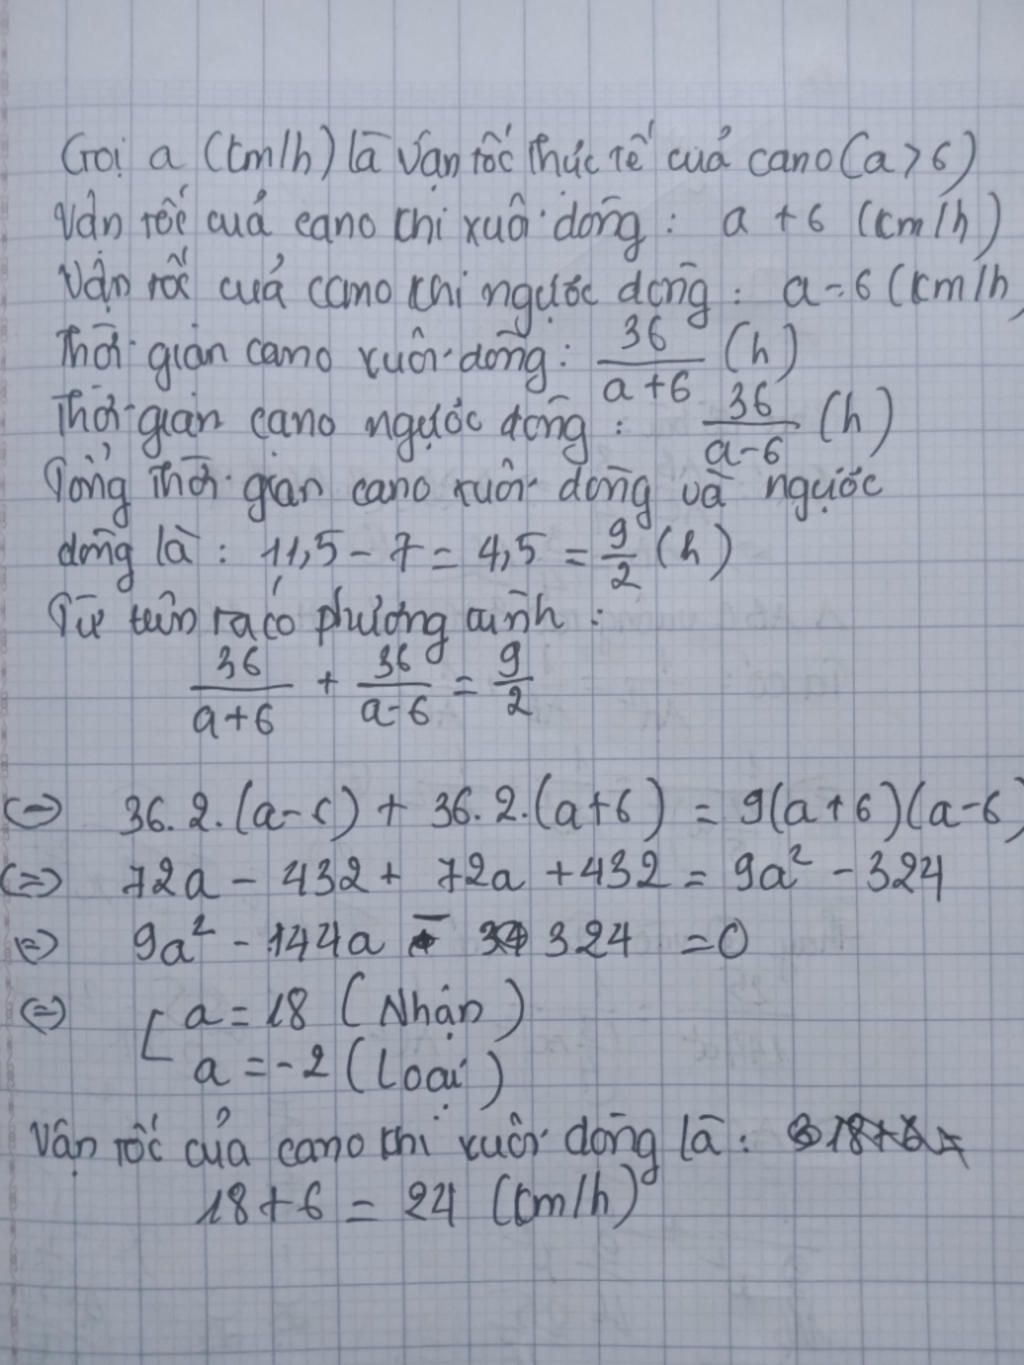 Gọi a (km/h) là vận tốc thực tế của cano (a > 6)
Vận tốc của cano khi xuôi dòng : a + 6 (km/h)
Vận tốc của cano khi ngược dòng : a - 6 (km/h
Thời gian cano xuôi dòng : 36/(a+6) (h)
Thời gian cano ngược dòng : 36/(a-6) (h)
Tổng thời gian cano xuôi dòng và ngược
dòng là : 11,5 - 7 = 4,5 = 9/2 (h)
Từ trên ta có phương trình :
36/(a+6) + 36/(a-6) = 9/2
(=) 36.2.(a-6) + 36.2.(a+6) = 9(a+6)(a-6)
(=) 72a - 432 + 72a + 432 = 9a² - 324
(=) 9a² - 144a - 324 = 0
(=) [ a = 18 (Nhận)
a = -2 (Loại)
Vận tốc của cano khi xuôi dòng là : 18+6=
18 + 6 = 24 (km/h)